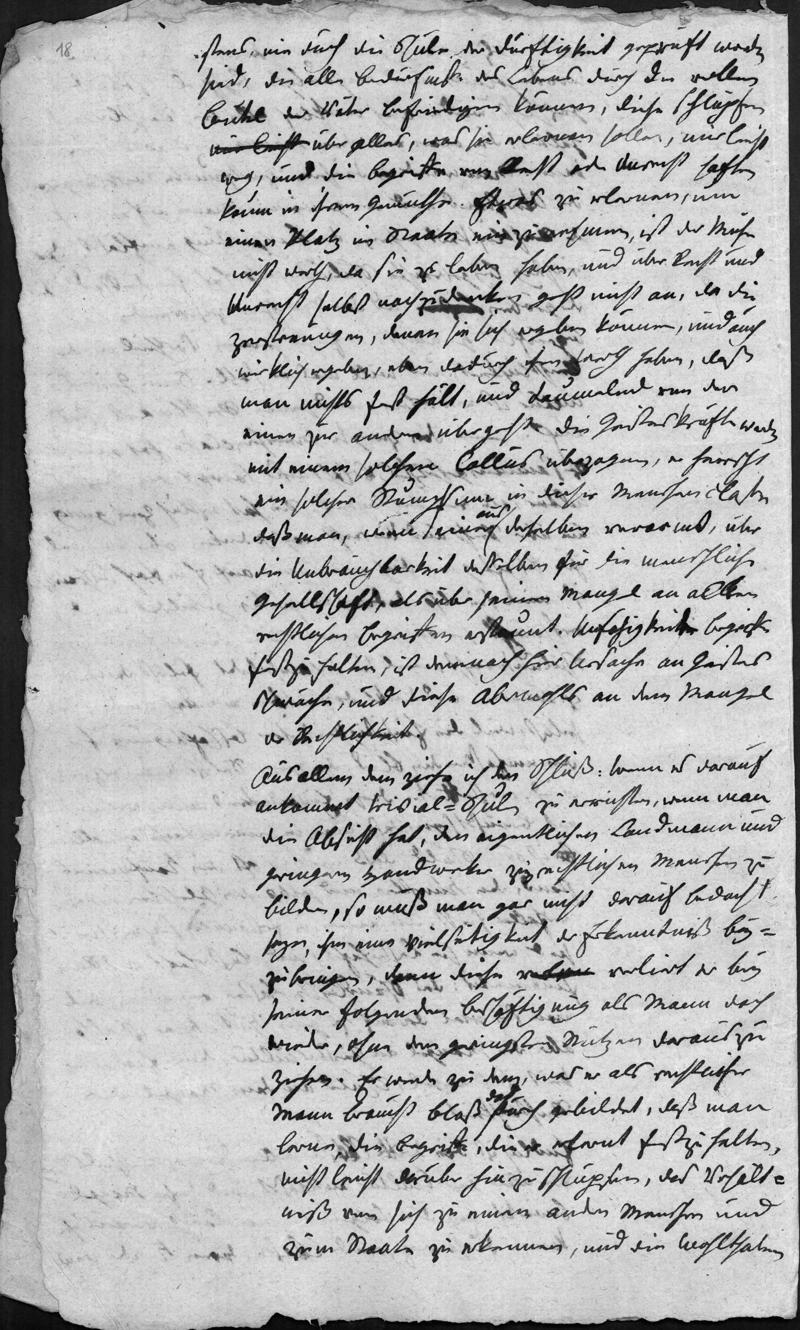 18
stens, nie durch die Schule der Dürftigkeit geprüft worden
sind, die alle Bedürfniße des Lebens durch den vollen
Beutel der Väter befriedigen können, diese schlüpfen
nur leicht über alles, was sie erlernen sollen, nur leicht
weg, und die Begriffe von Recht oder Unrecht haften
kaum in ihrem Gemüthe. Etwas zu erlernen, um
einen Platz im Staate einzunehmen, ist der Mühe
nicht werth, da sie zu leben haben, und über Recht und
Unrecht selbst nachzudenken geht nicht an, da die
Zerstreuungen, denen sie sich ergeben können, und auch
wirklich ergeben, eben dadurch ihren Werth haben, daß
man nichts fest hält, und taumelnd von der
einen zur andern übergeht. Die Geisteskräfte werden
mit einem solchen Callus überzogen, es herrscht
ein solcher Stumpfsinn in dieser Menschen Claße
daß man, wenn einer aus derselben verarmt, über
die Unbrauchbarkeit deßelben für die menschliche
Gesellschaft, als über seinen Mangel an allen
rechtlichen Begriffen erstaunt. Unfähigkeit Begriffe
festzuhalten, ist demnach hier Ursache an Geistes
Schwäche, und diese abermahls an dem Mangel
der Rechtlichkeit.
Aus allem dem ziehe ich den Schluß: wenn es darauf
ankommt Trivial=Schulen zu errichten, wenn man
die Absicht hat, den eigentlichen Landmann und
geringern Handwerker zu rechtlichen Menschen zu
bilden, so muß man gar nicht darauf bedacht
seyn, ihm eine Vielseitigkeit der Erkenntniß bey=
zubringen, denn diese verliert er bey
seiner folgenden Beschäftigung als Mann doch
wieder, ohne den geringsten Nutzen daraus zu
ziehen. Er werde zu dem, was er als rechtlicher
Mann braucht bloß dadurch gebildet, daß man
lerne, die Begriffe, die er erlernt festzuhalten,
nicht leicht darüber hinzuschlüpfen, das Verhält=
niß von sich zu einem andern Menschen und
zum Staate zu erkennen, und die Wohlthaten